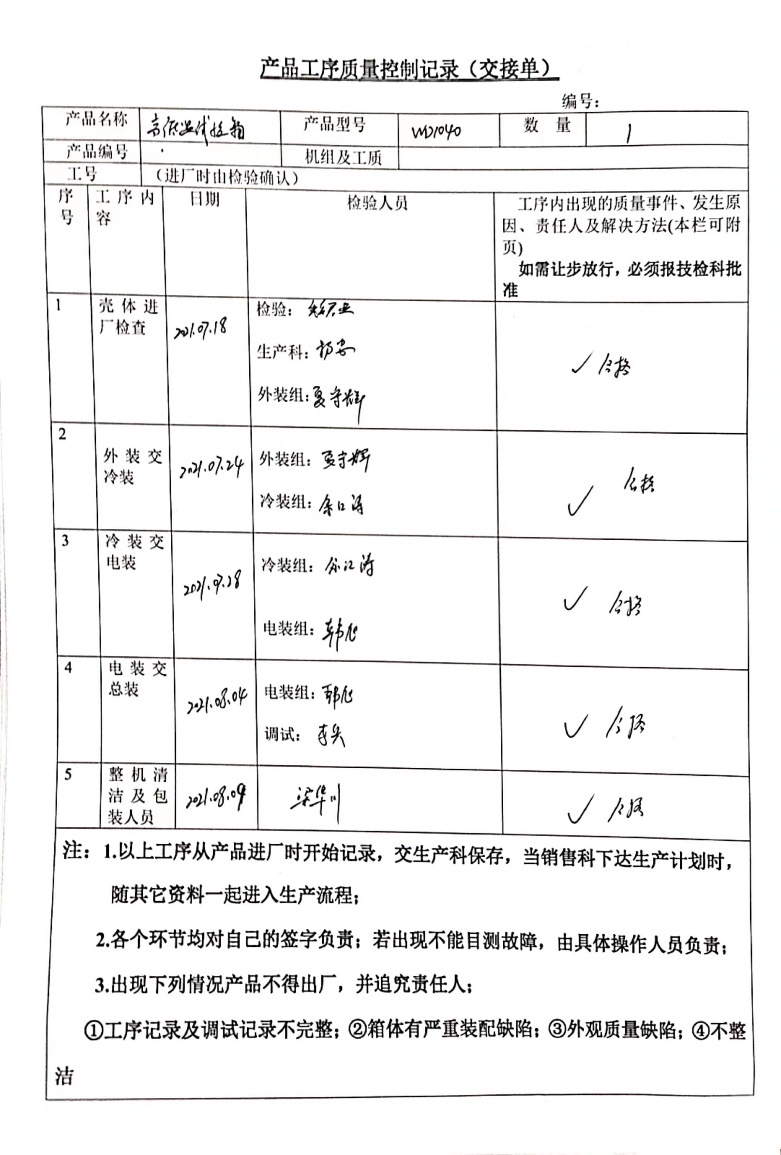 产品工序质量控制记录（交接单）
编号：
产品名称 高低温试验箱 产品型号 WD1040 数 量 1
产品编号 机组及工质
工号 （进厂时由检验确认）
序号 工序内容 日期 检验人员 工序内出现的质量事件、发生原
因、责任人及解决方法(本栏可附
页)
如需让步放行，必须报技检科批
准
1 壳体进
厂检查 2021.07.18 检验：
生产科：
外装组：夏守辉
✓ 合格
2 外装交
冷装 2021.07.24 外装组：夏守辉
冷装组：余江涛
✓ 合格
3 冷装交
电装 2021.07.28 冷装组：余江涛
电装组：
✓ 合格
4 电装交
总装 2021.08.04 电装组：
调试：
✓ 合格
5 整机清
洁及包
装人员 2021.08.09 梁华川 ✓ 合格
注：1.以上工序从产品进厂时开始记录，交生产科保存，当销售科下达生产计划时，
随其它资料一起进入生产流程；
2.各个环节均对自己的签字负责；若出现不能目测故障，由具体操作人员负责；
3.出现下列情况产品不得出厂，并追究责任人；
①工序记录及调试记录不完整；②箱体有严重装配缺陷；③外观质量缺陷；④不整
洁